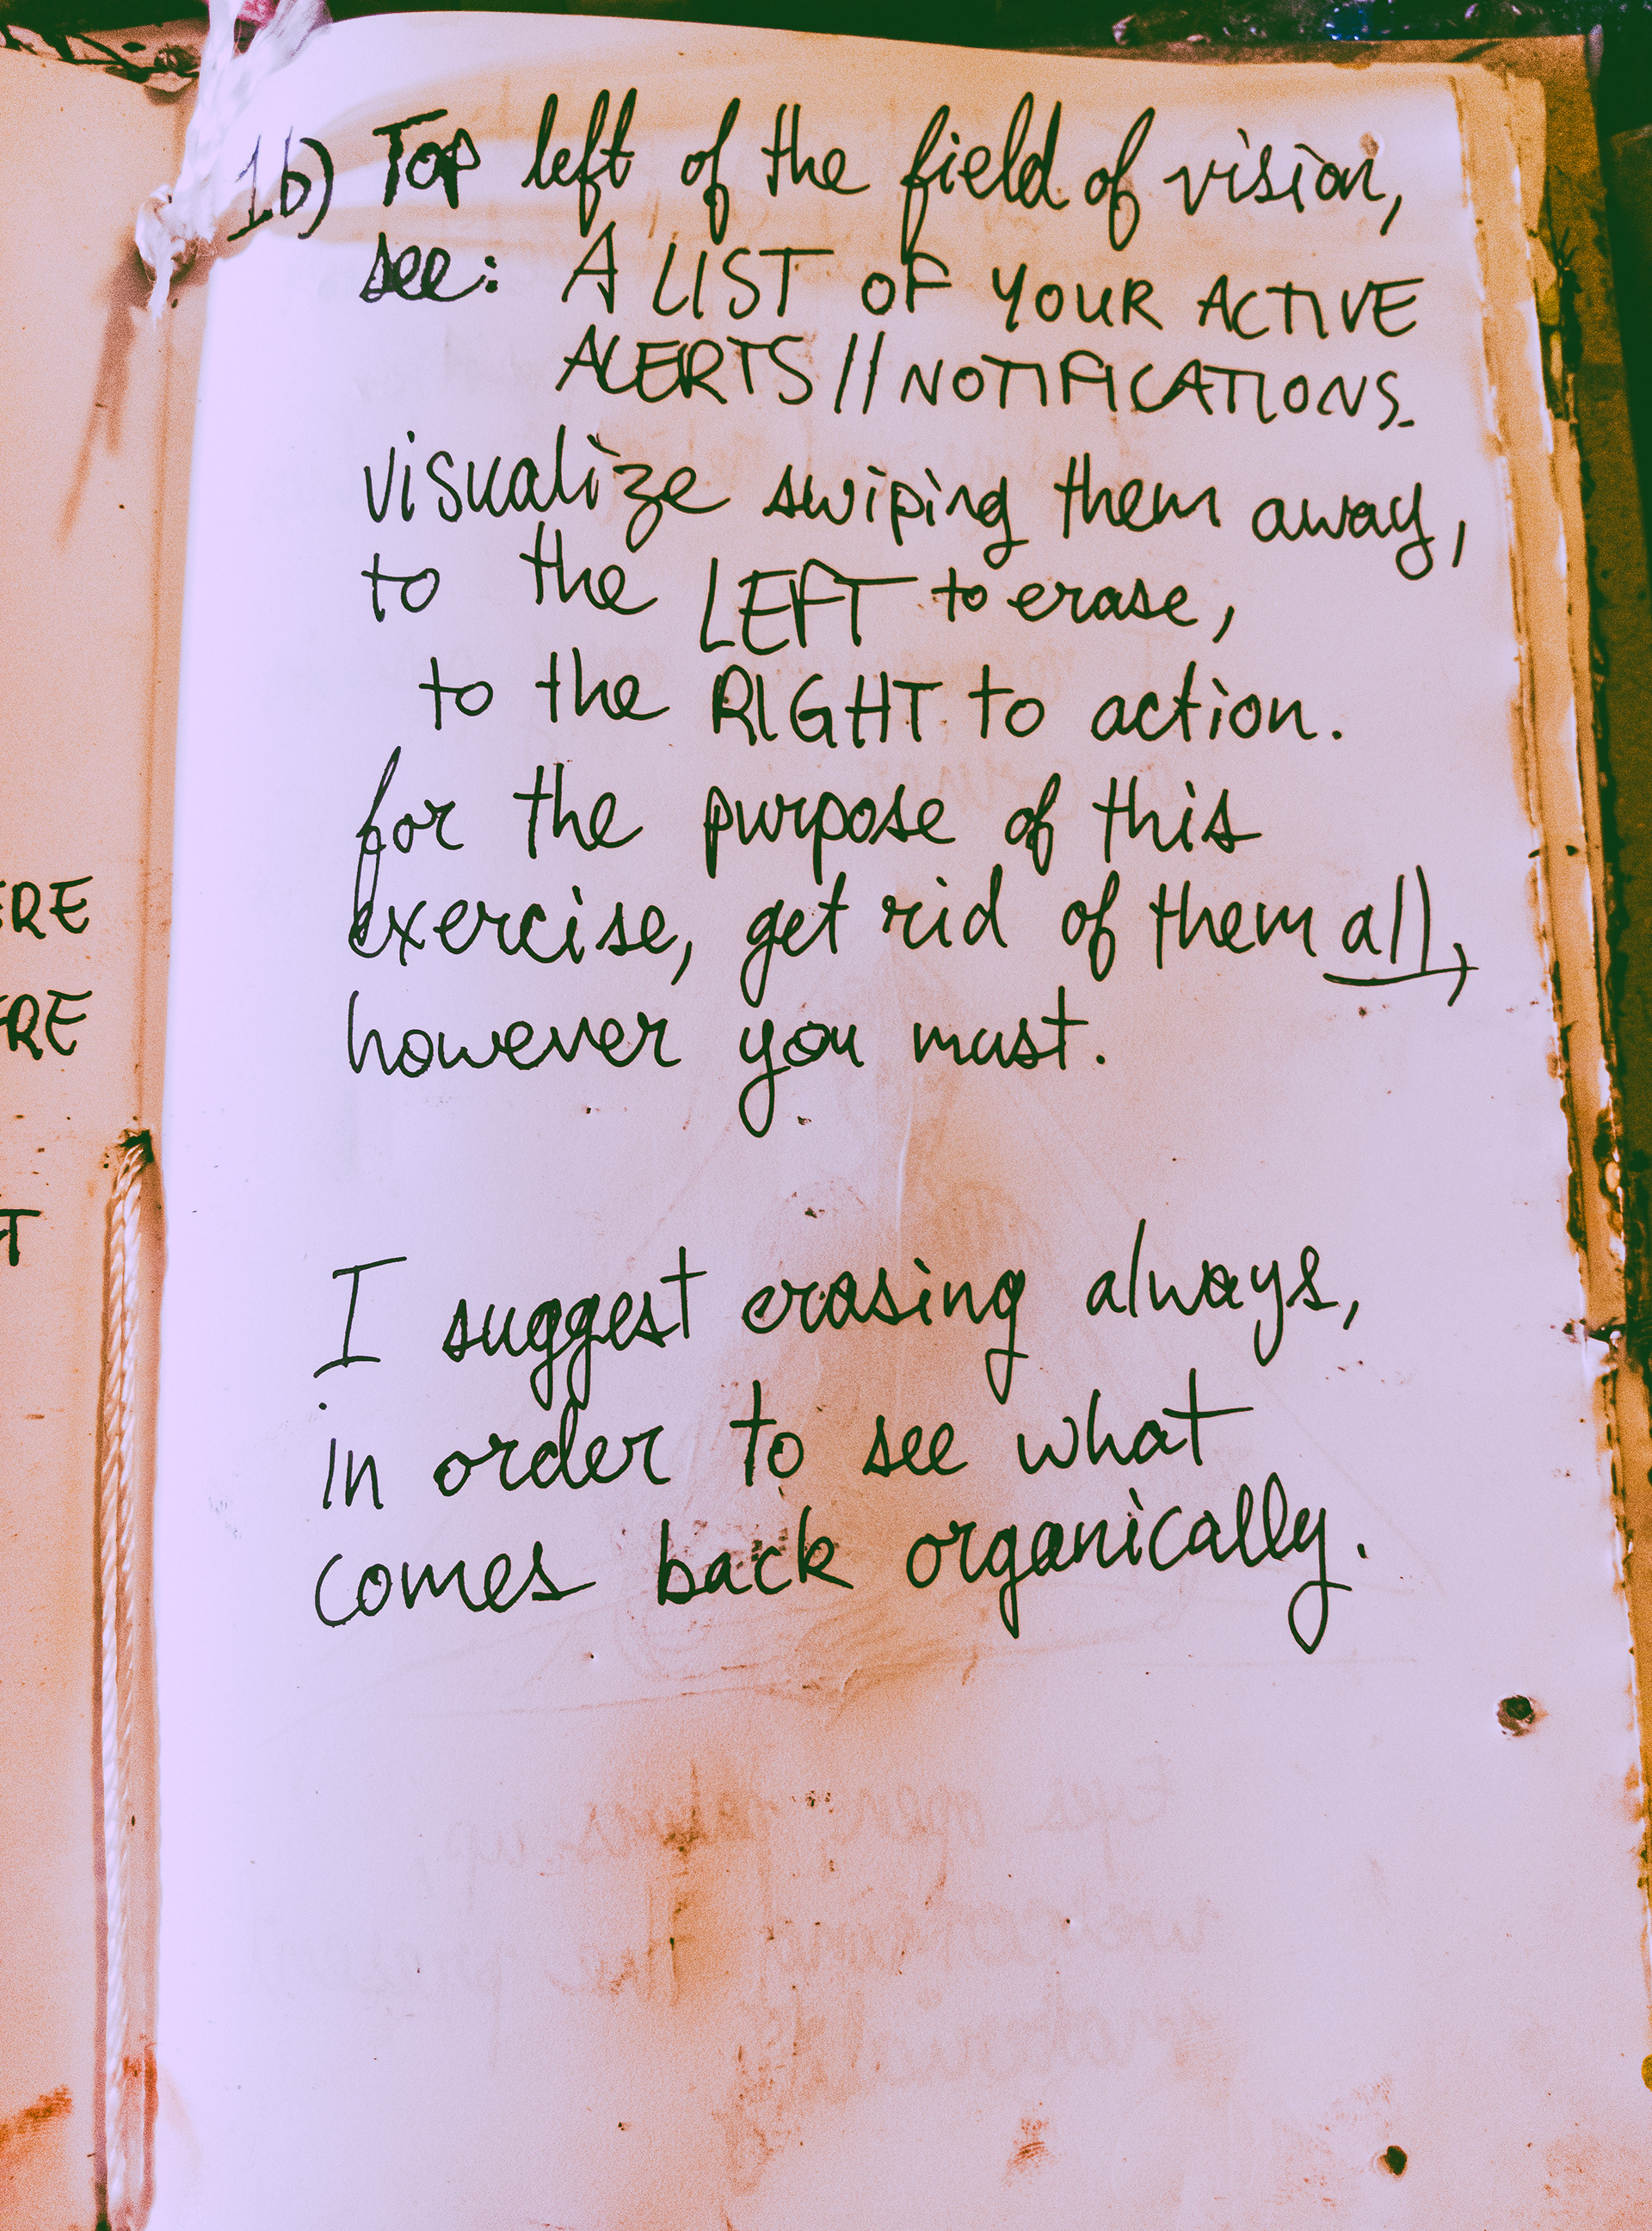 ERE
ERE
T
1b) Top left of the field of vision,
see: A LIST OF YOUR ACTIVE
ALERTS // NOTIFICATIONS.
visualize swiping them away,
to the LEFT to erase,
to the RIGHT to action.
for the purpose of this
exercise, get rid of them all,
however you must.
I suggest erasing always,
in order to see what
comes back organically.